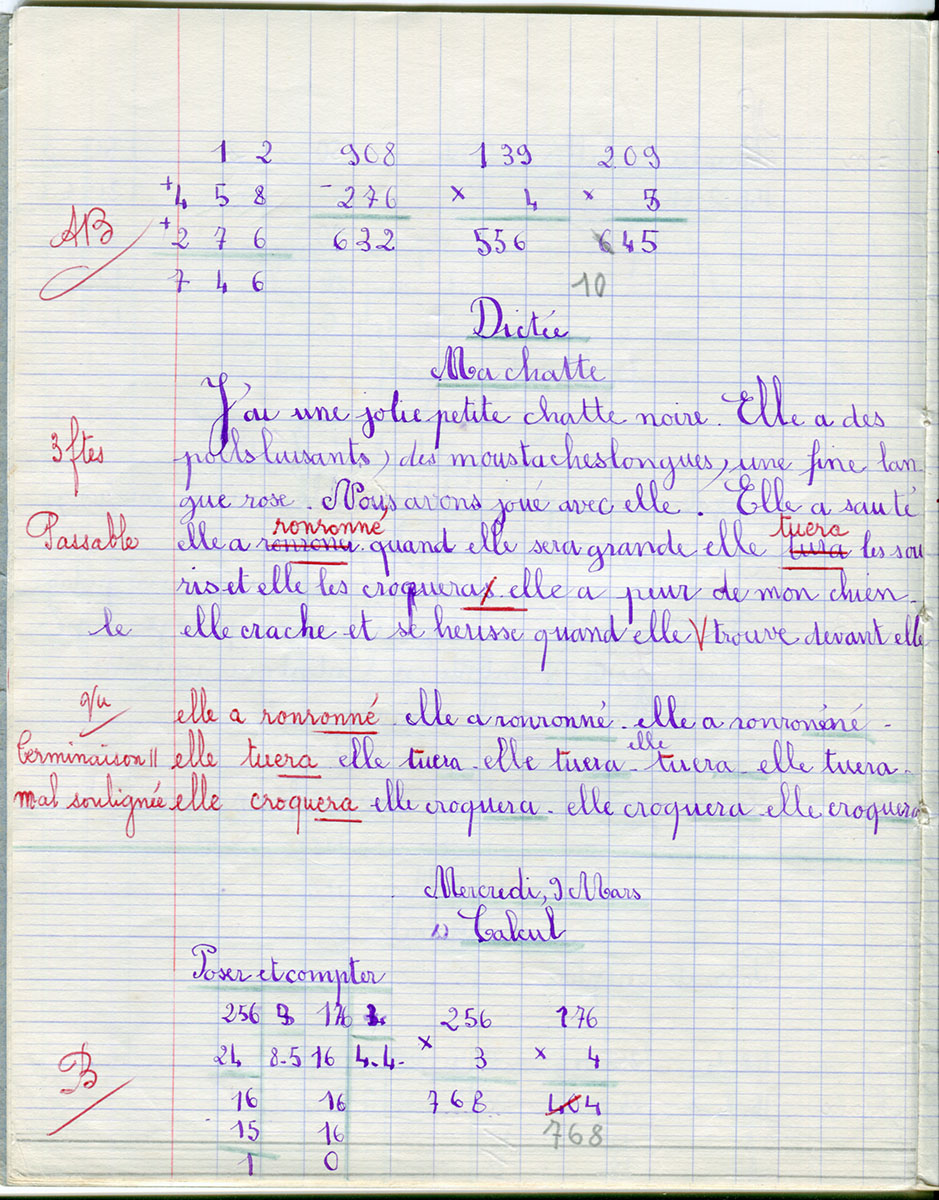 1 2 908 139 209
+ 4 5 8 - 276 × 4 × 5
AB + 2 7 6 632 556 645
7 4 6 10
Dictée
Ma chatte
J'ai une jolie petite chatte noire. Elle a des
3 ftes poils luisants, des moustaches longues, une fine lan
gue rose. Nous avons joué avec elle. Elle a sauté
ronronné tuera
Passable elle a quand elle sera grande elle tura les sou
ris et elle les croquera elle a peur de mon chien.
le elle crache et se herisse quand elle V trouve devant elle
q/u elle a ronronné elle a ronronné. elle a ronronéné -
elle
Terminaison || elle tuera elle tuera. elle tuera. tuera. elle tuera.
mal soulignée elle croquera elle croquera. elle croquera elle croquera
Mercredi, 9 Mars
1) Calcul
Poser et compter
256 3 176 256 176
24 8.5 16 4.4. × 3 × 4
B 16 16 768 404
15 16 768
1 0